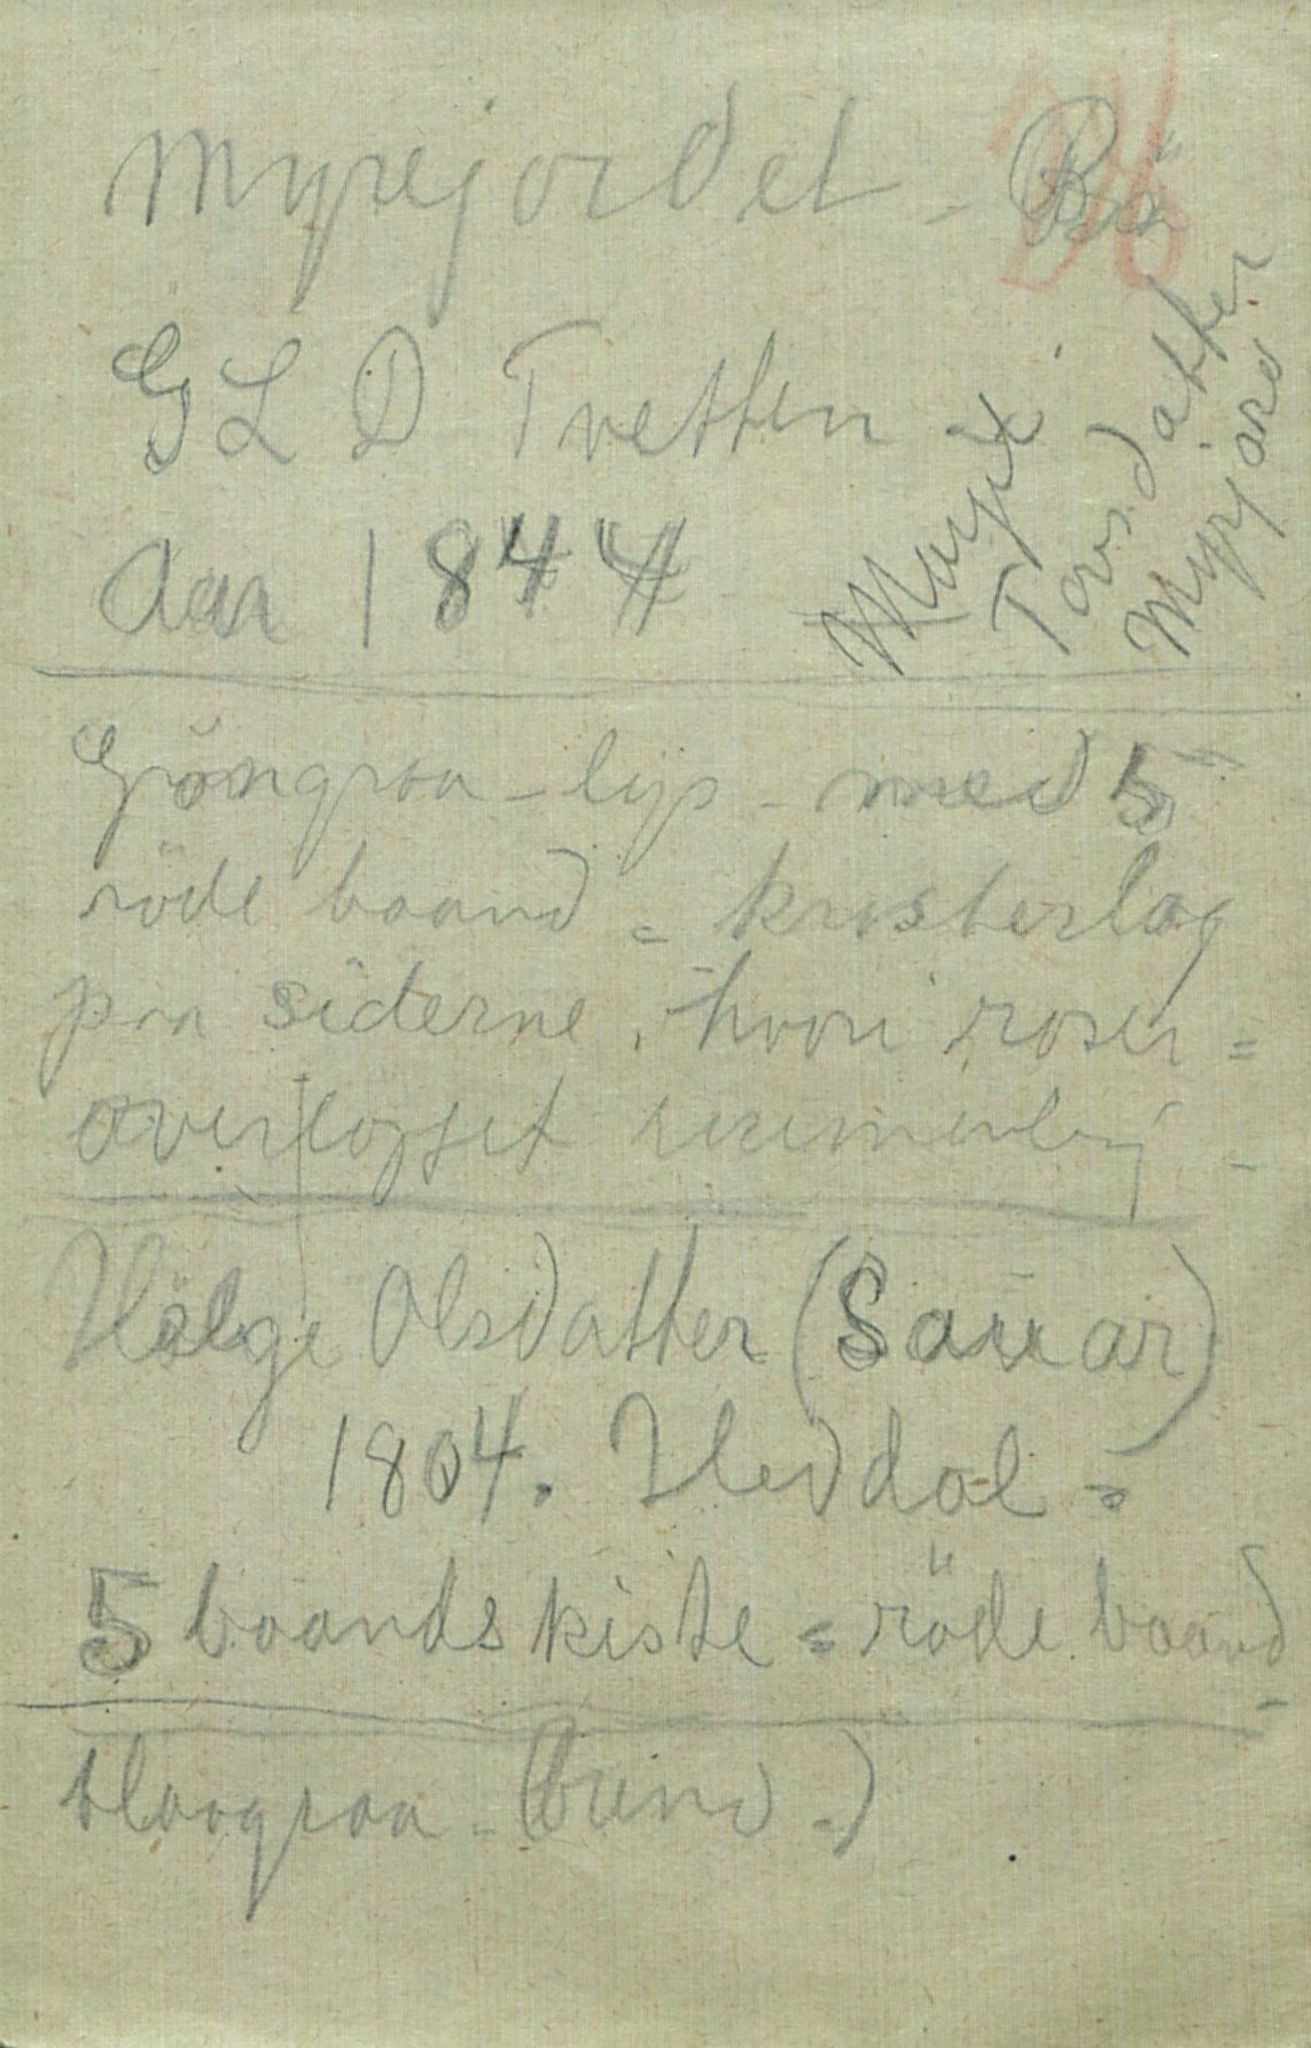 Myrejordet - Bö
26
G L D Tvetten
Aar 1844
Margit
Torsdatter
Myrjord
Gröngraa - lys - med 5
röde baand = krusterlag
paa siderne, hvori roser =
overlopset
Helge Olsdatter (Sauar)
1804. Heddal =
5 baandskiste = röde baand -
blaagraa - (bund.)